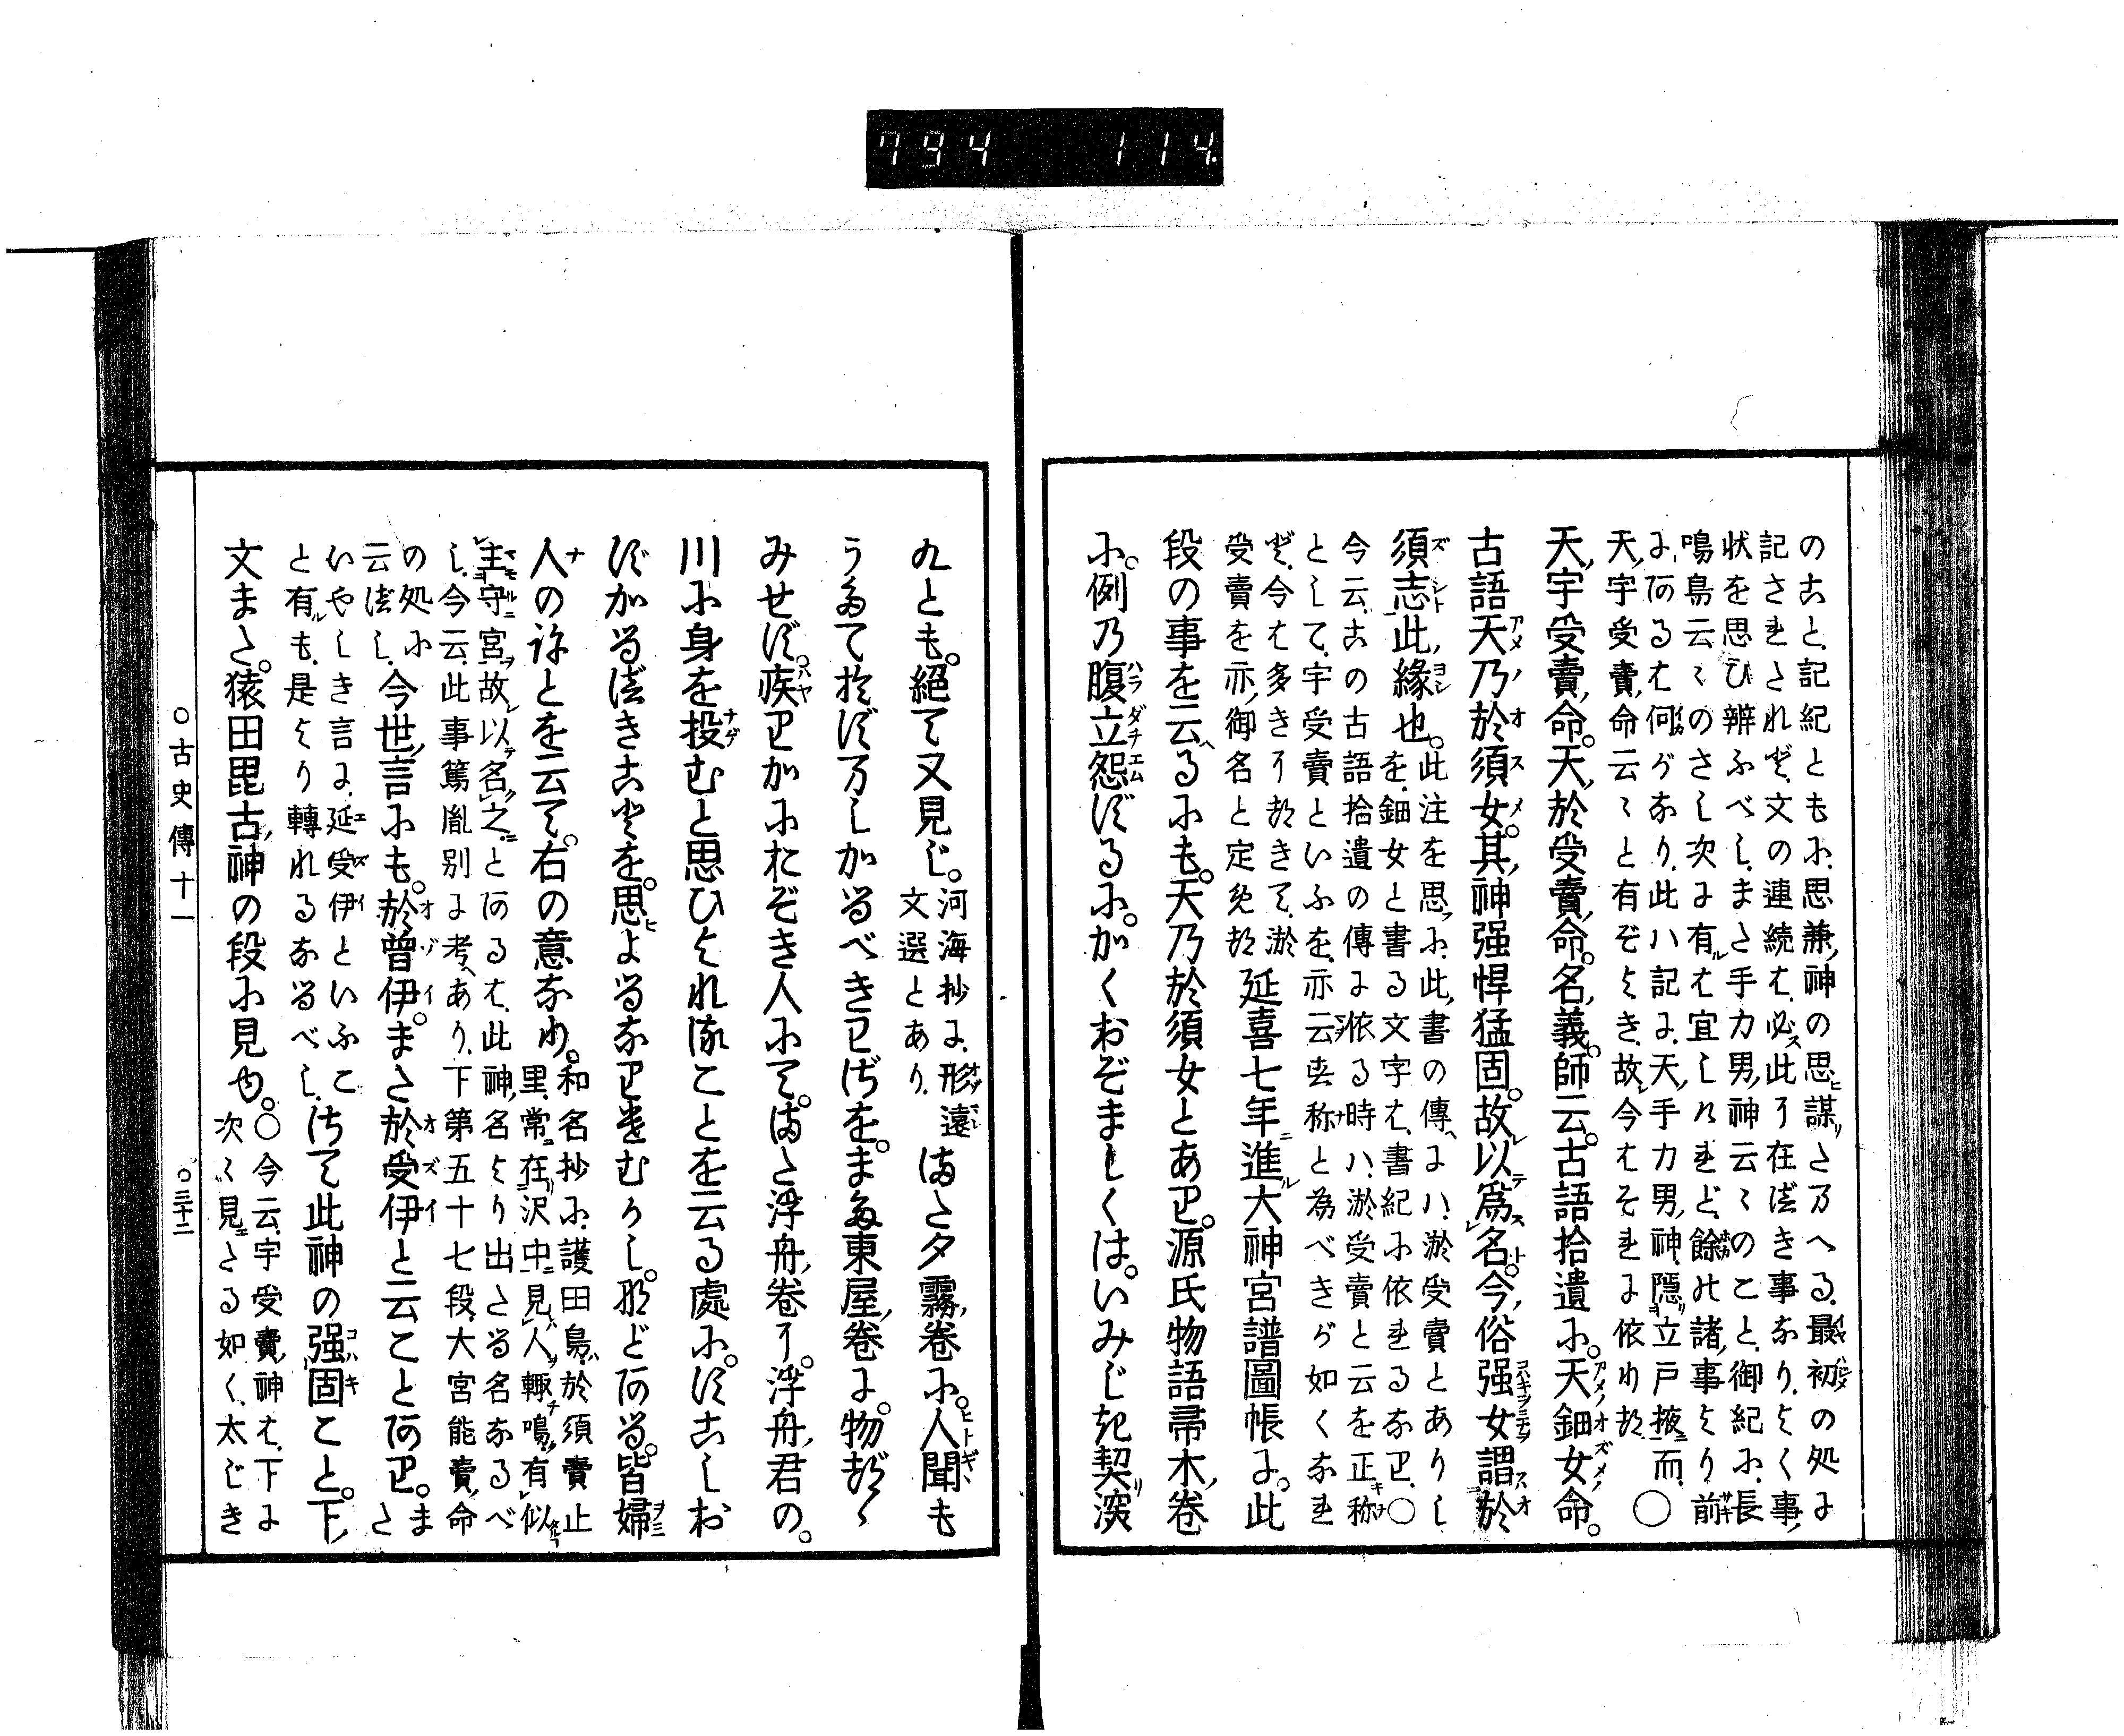 794 114
のこと、記紀ともに、思兼神の思謀たまへる、最初の処に
記されたれど、文の連続は、必此に在べき事なり、よく事
状を思ひ辨ふべし、また手力男神云々のこと、御紀に、長
鳴鳥云々のさし次に有は宜しけれど、餘の諸事より前
にあるは何がなり、此ハ記に、天手力男神、隱立戸掖而、
天宇受賣命云々と有ぞよき、故今はそれに依れり、〇
天宇受賣命。天於受賣命。名義。師云。古語拾遺に。天鈿女命。
古語天乃於須女。其神强悍猛固。故以爲名。今俗强女謂於
須志此縁也。此注を思ふに、此書の傳には、淤受賣とありし
を、鈿女と書る文字は、書紀に依れるなり。〇
今云、この古語拾遺の傳に依る時ハ、淤受賣と云を正称
として、宇受賣といふを、亦云称と為べきが如くなれ
ど、今は多きに就きて、淤
受賣を亦御名と定めつ、延喜七年進大神宮譜圖帳に。此
段の事を云るにも。天乃於須女とあり。源氏物語帚木卷
に。例乃腹立怨ずるに。かくおぞましくは。いみじき契深
くとも。絕て又見じ。河海抄に、形遠
文選とあり、また夕霧卷に。人聞も
うたておずましかるべきわざを。また東屋卷に。物づゝ
みせず。疾りかにおぞき人にて。また浮舟卷に。浮舟君の。
川に身を投むと思ひよれることを云る處に。すこしお
ずかるべきことを。思よるなりけむかし。などある。皆婦
人の詠とを云て。右の意なり。和名抄に、護田鳥、於須賣止
里、常在沢中、見人輙鳴、有似
主守宮、故以名之とあるは、此神名より出たる名なるべ
し、今云、此事篤胤別に考あり、下第五十七段、大宮能賣命
の処に
云べし、今世言にも。於曾伊。また於受伊と云ことあり。また
いやしき言に、延受伊といふこ
と有も、是より轉れるなるべし、さて此神の强固こと。下
文また。猿田毘古神の段に見ゆ。〇今云、宇受賣神は、下に
次々見たる如く、太じき
〇古史傳十一 〇三十二